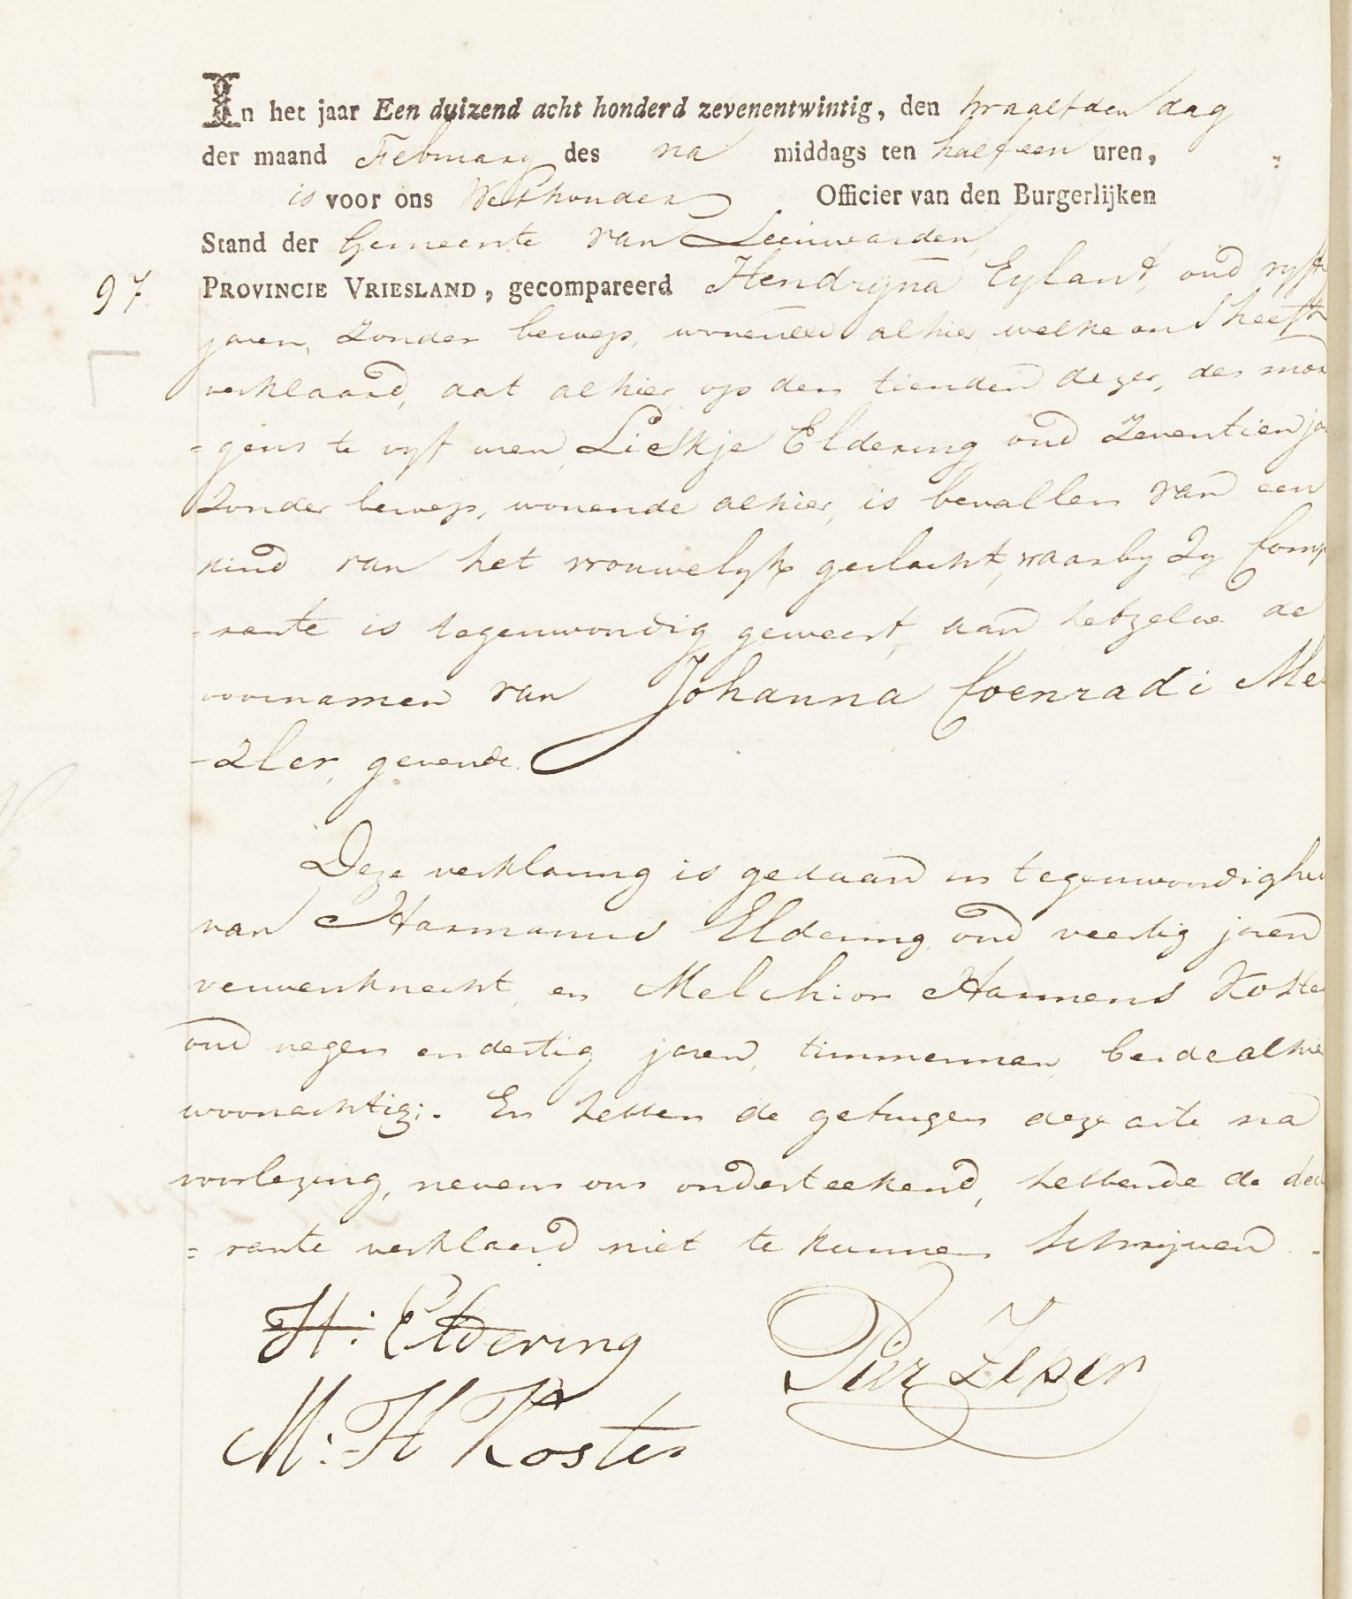 In het jaar Een duizend acht honderd zevenentwintig, den twaalfden dag
der maand February des na middags ten half een uren,
is voor ons Wethouder Officier van den Burgerlijken
Stand der Gemeente van Leeuwarden
97 PROVINCIE VRIESLAND, gecompareerd Hendrijna Eyland, oud vyftig
jaren, zonder beroep, wonende alhier welke ons heeft
verklaard, dat alhier op den tienden dezer, des mor
=gens te vyf uren, Lieskje Eldering oud Zeventien ja
Zonder beroep, wonende alhier, is bevallen van een
kind van het vrouwelyk geslacht, waarby Zy Comp
=rante is tegenwoordig geweest, aan hetzelve de
voornamen van Johanna Coenradi Me
-zler, gevende.
Deze verklaring is gedaan in tegenwoordighe
van Harmanus Eldering oud veertig jaren
verwersknecht, en Melchior Harmens Koster
oud negen en dertig jaren, timmerman, beide alhier
woonachtig;. En hebben de getuigen deze acte na
voorlezing, nevens ons onderteekend, hebbende de decla
=rante verklaard niet te kunnen schrijven.
H: Eldering
Pier Zeper
M: H Koster